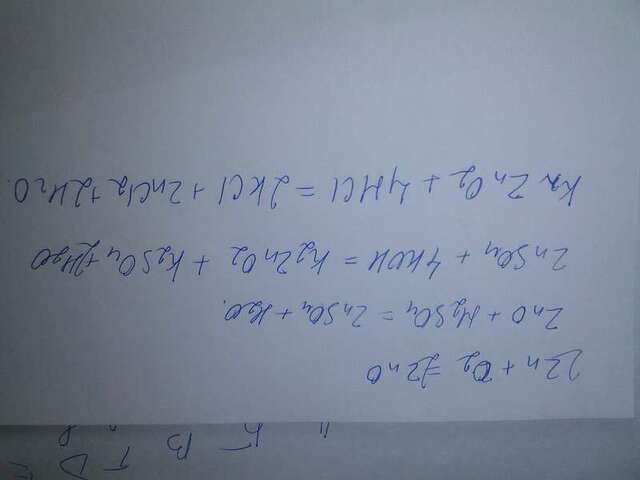 2Zn + O2 = 2ZnO
ZnO + H2SO4 = ZnSO4 + H2O.
ZnSO4 + 4KOH = K2ZnO2 + K2SO4 + 2H2O
K2ZnO2 + 4HCl = 2KCl + ZnCl2 + 2H2O.